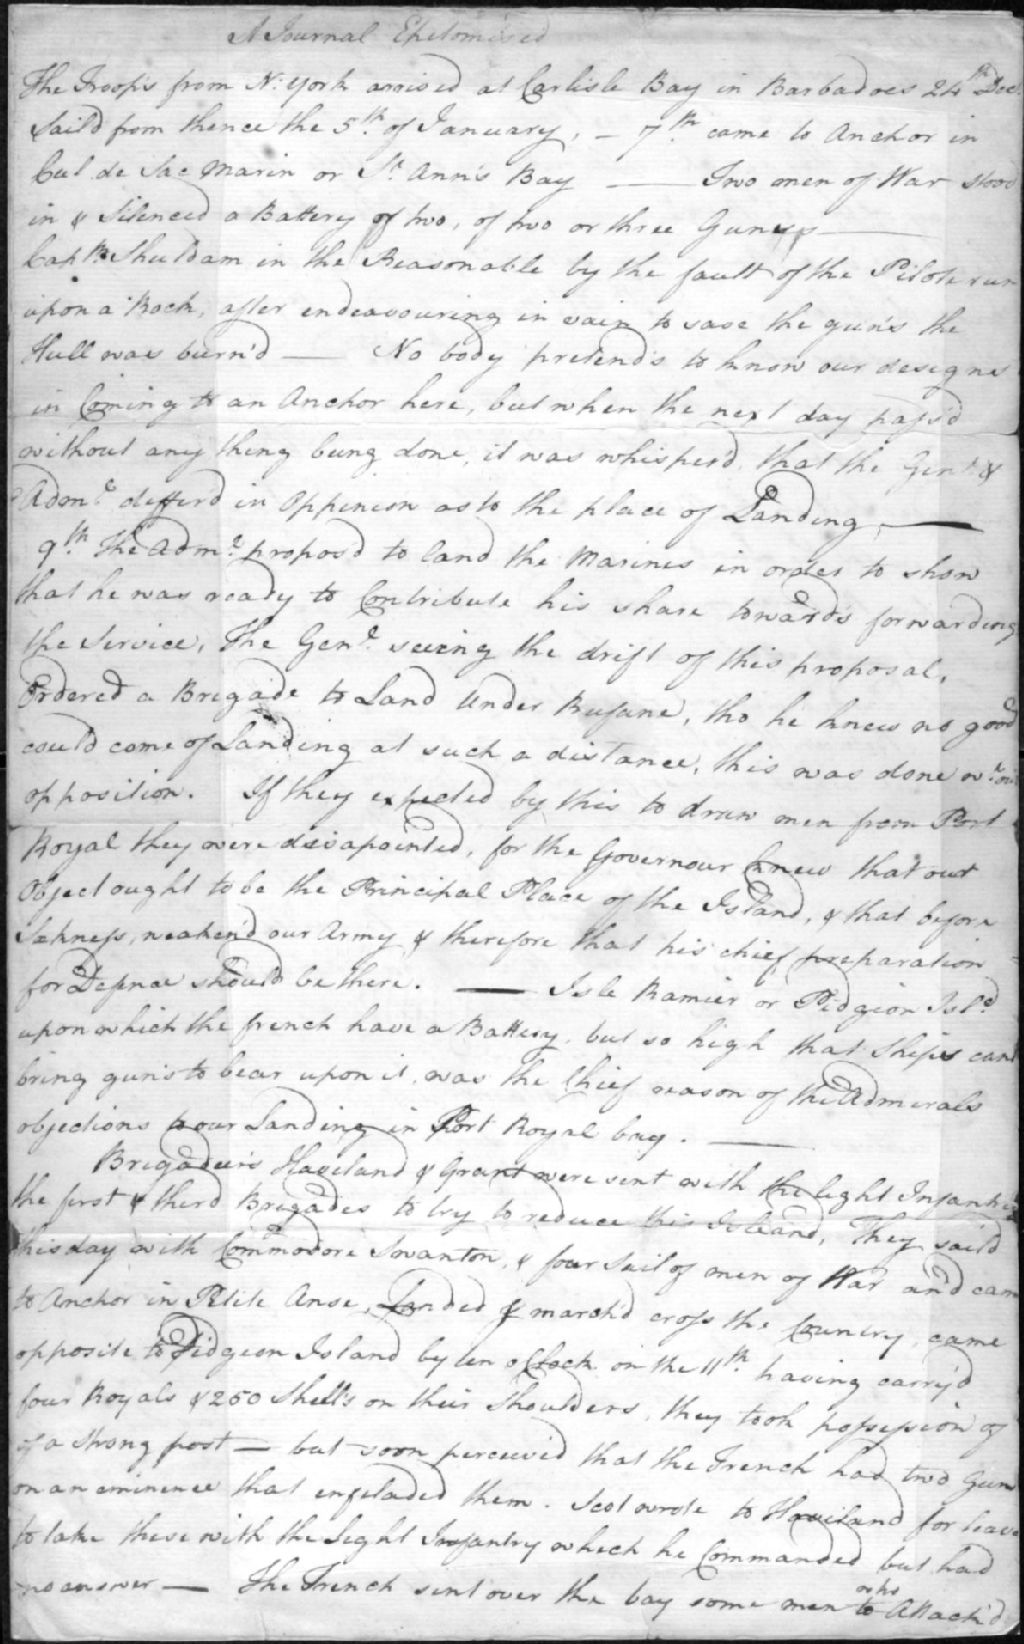 A Journal Epetomised
The Troops from N: York arrived at Carlisle Bay in Barbadoes 24th Decr
Sail'd from thence the 5th. of January, – 7th. came to Anchor in
Cul de Sac Marin or St Ann's Bay —— Two men of War stood
in & Silenced a Battery of two, of two or three Guns ——
Captn Shuldam in the Reasonable by the fault of the Pilote run
upon a Rock, after endeavouring in vain to save the guns the
Hull was burn'd —— No body pretends to know our designs
in Coming to an Anchor here, but when the next day pass'd
without any thing being done, it was whisperd, that the Genl. &
Adml. differd in Oppinion as to the place of Landing, ——
9th. The Adml. propos'd to land the Marines in order to show
that he was ready to Contribute his share towards forwarding
the Service, The Genl. seeing the drift of this proposal,
Ordered a Brigade to Land Under Rufane, tho he knew no good
could come of Landing at such a distance, this was done
opposition. If they expected by this to draw men from Port
Royal they were disapointed, for the Governour knew that our
Object ought to be the Principal Place of the Island, & that before
Sickness, weaken'd our Army & therefore that his chief preparation
for Defence should be there. —— Isle Ramier or Pidgeon Isld
upon which the french have a Battery, but so high that Ships cant
bring guns to bear upon it, was the Chief reason of the Admirals
objections to our Landing in Port Royal bay. ——
Brigadeirs Haviland & Grant were sent with the light Infantry
the first & third Brigades to try to reduce this Island, They sail'd
this day with Commodore Swanton, & four Sail of men of War and came
to Anchor in Petite Anse, landed & march'd cross the Country, came
opposite to Pidgeon Island by ten oClock on the 11th. having carry'd
four Royals & 250 Shells on their Shoulders, they took possession of
of a strong post — but soon perceived that the French had two Guns
on an eminence that enfiladed them. Scot wrote to Haviland for leave
to take these with the light Infantry which he Commanded but had
no answer — The French sent over the bay some men who to Attack'd